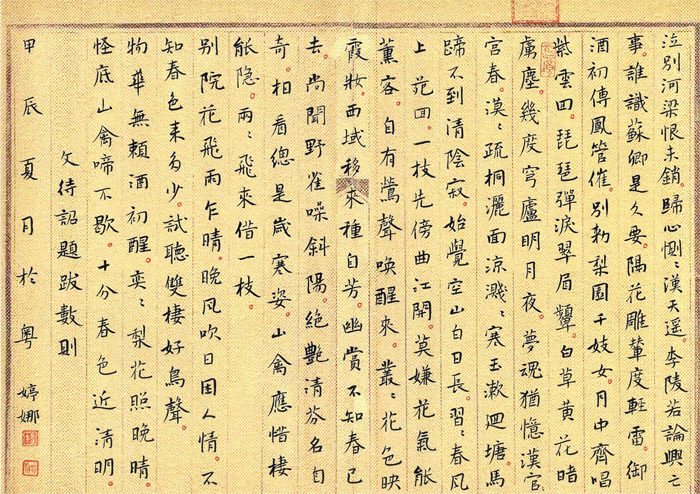 泣別河梁恨未銷。歸心恻〻漢天遥。李陵若論興亡
事。誰識蘇卿是久要。隔花雕輦度輕雷。御
酒初傳鳳管催。別勅梨園千妓女。月中齊唱
紫雲回。琵琶彈淚翠眉顰。白草黄花暗
虜塵。幾度穹廬明月夜。夢魂猶憶漢官
宮春。漠〻疏桐灑面涼。濺〻寒玉漱迴塘。馬
蹄不到清陰寂。始覺空山白日長。習〻春風
上苑回。一枝先傍曲江開。莫嫌花氣能
薰客。自有鶯聲喚醒來。叢〻花色映
霞妝。西域移來種自芳。幽賞不知春已
去。尚聞野雀噪斜陽。絕艷清芬名自
奇。相看總是歲寒姿。山禽應惜棲
能隐。雨〻飛來借一枝。
別院花飛雨乍晴。晚風吹日困人情。不
知春色来多少。試聽雙棲好鳥聲。
物華無賴酒初醒。奕〻梨花照晚晴。
怪底山禽啼不歇。十分春色近清明。
文待詔題跋數則
甲辰夏月於粤 婷娜